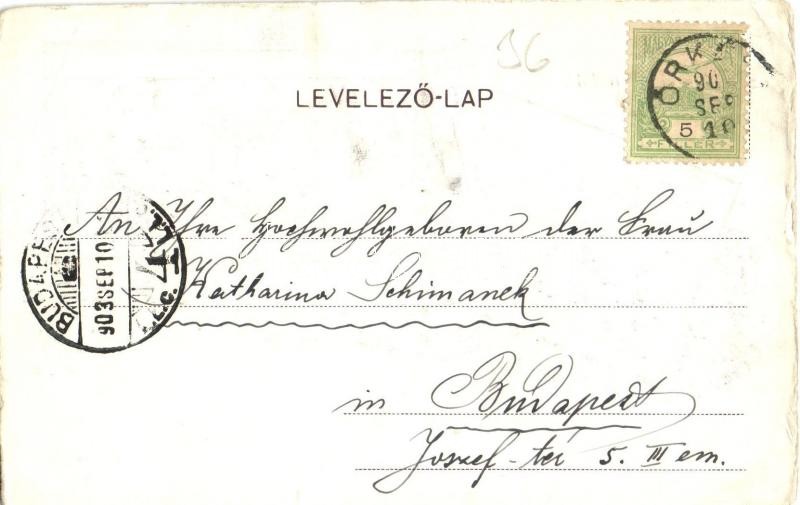 36
LEVELEZŐ-LAP
ÖRK
90
SEP
10
5
FILLÉR
An Ihre Hochwohlgeboren der Frau
Katharina Schimanek
in Budapest
József-tér 5. III em.
BUDAPE
903 SEP 10